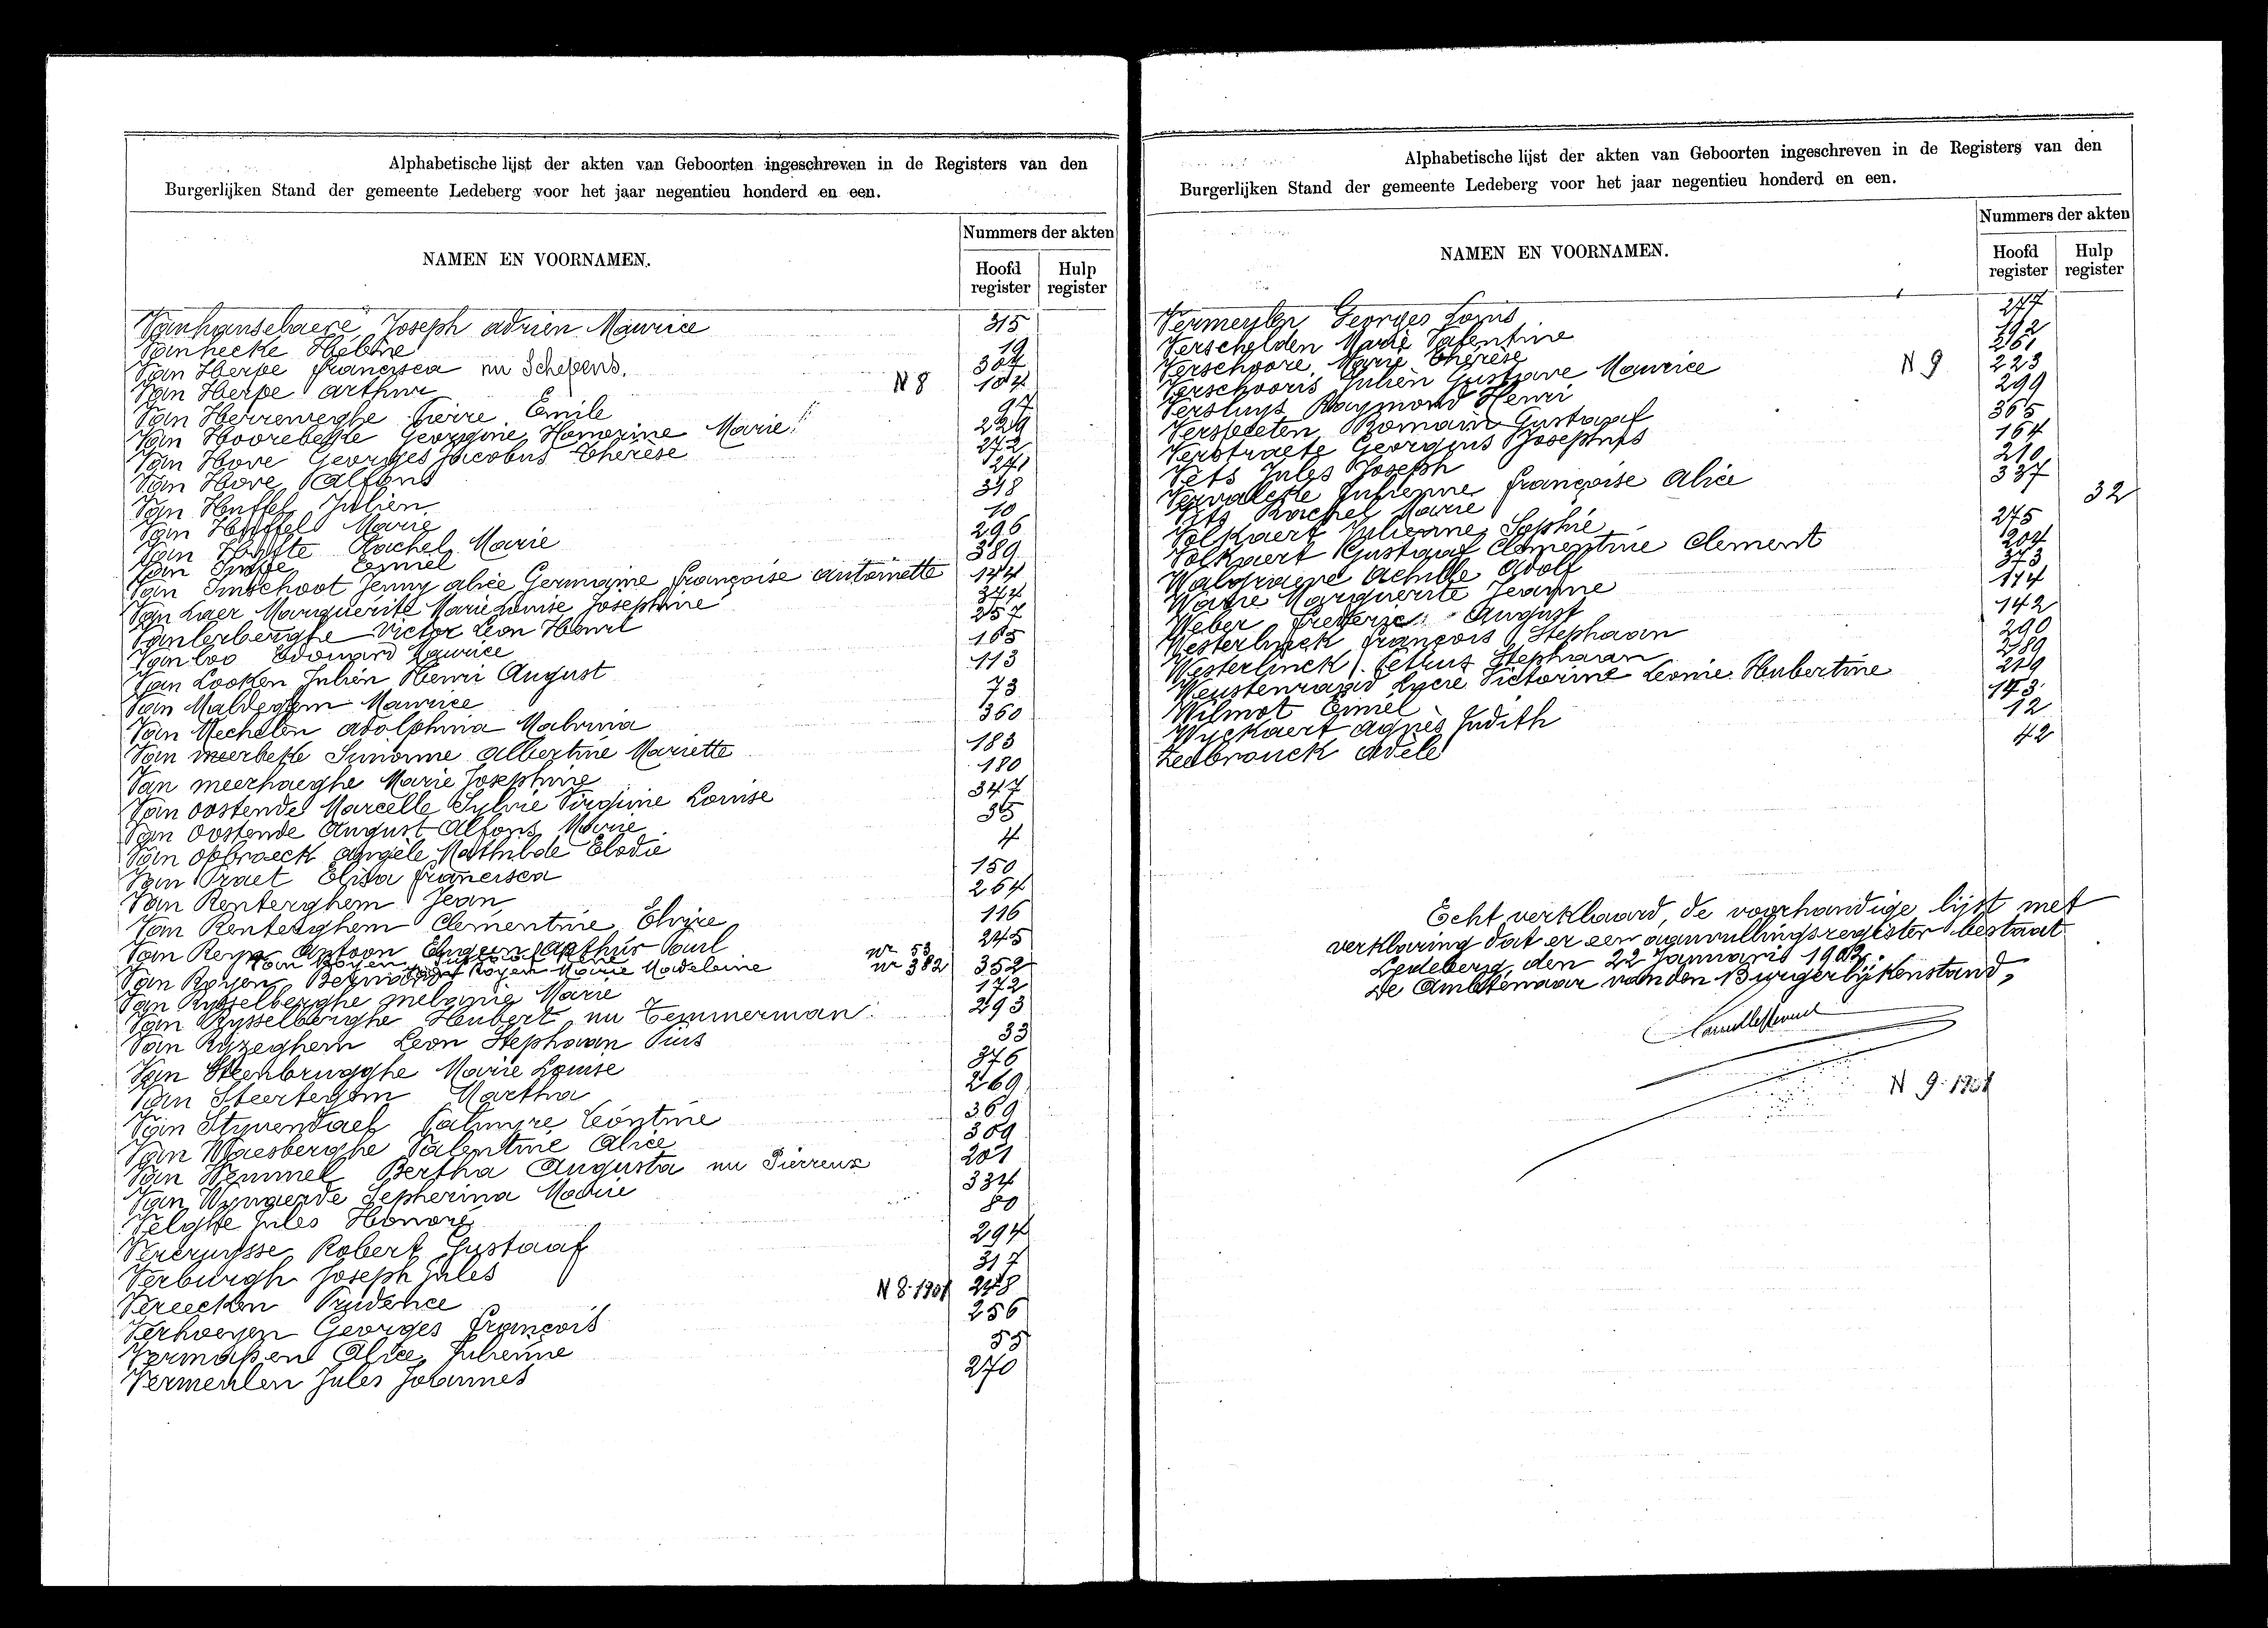 Alphabetische lijst der akten van Geboorten ingeschreven in de Registers van den
Burgerlijken Stand der gemeente Ledeberg voor het jaar negentieu honderd en een.
NAMEN EN VOORNAMEN.
Nummers der akten
Hoofd register
Hulp register
Vanhanselaere Joseph adrien Maurice 315
Vanhecke Hélène 19
Van Herpe francisca nu Schepens. 307
Van Herpe arthur N 8 104
Van Herreweghe Pierre Emile 97
Van Hoorebeke Georgine Honorine Marie 229
Van Hove Georges Jacobus Therèse 272
Van Hove Alfons 241
Van Huffel Julien 318
Van Huffel Marie 10
Van Hulste Rachel Marie 296
Van Impe Emiel 389
Van Imschoot Jenny alice Germaine françoise antoinette 144
Van Laer Marguerite Marie Louise Josephine 344
Vanlerberghe Victor Leon Henri 257
Van loo Edouard Maurice 165
Van Looken Julien Henri August 113
Van Maldeghem Maurice 73
Van Mechelen adolphina Malvina 360
Van meerbeke Simonne albertine Mariette 183
Van meerhaeghe Marie Josephine 180
Van oostende Marcelle Sylvie Virginie Louise 347
Van oostende August Alfons Marie 35
Van opbroeck angèle Mathilde Elodie 4
Van Praet Elisa francisca 150
Van Renterghem Jean 264
Van Renterghem Clementine Elvire 116
Van Reyn Antoon Eugeen Arthur Paul 245
nr 53
Van Royen Marie Madeleine nr 382
Van Royen 352
Van Rysselberghe melanie Marie 172
Van Rysselberghe Hubert nu Temmerman 293
Van Ryzeghem Leon Stephaan Pius 33
Van Steenbrugghe Marie Louise 376
Van Steertegem Martha 269
Van Stuvendael Palmyre Léontine 369
Van Waesberghe Valentine Alice 309
Van Wemmel Bertha Augusta nu Pierreux 201
Van Wynaerde Sepherina Marie 334
Velghe Jules Honoré 80
Vercruysse Robert Gustaaf 294
Verburgh Joseph Jules 317
Vereecken Prudence N 8-1901 248
Verhoeyen Georges françois 256
Alice Julienne 55
Vermeulen Jules Johannes 270
Alphabetische lijst der akten van Geboorten ingeschreven in de Registers van den
Burgerlijken Stand der gemeente Ledeberg voor het jaar negentieu honderd en een.
NAMEN EN VOORNAMEN.
Nummers der akten
Hoofd register
Hulp register
Vermeulen Georges Louis 277
Verschelden Marie Valentine 192
Verschoore Marie Thérèse 261
Verschooris Julien Gustave Maurice N 9 223
Versluys Raymond Henri 299
Romain Gustaaf 365
Verstraete Georgius Josephus 164
Vets Jules Joseph 210
Vervalcke Julienne françoise Alice 337
Vits Rachel Marie 32
Volkaert Julienne Sophie 275
Volkaert Gustaaf Clementine Clement 204
Walgraeve Achille Adolf 373
Marguerite Jeanne 174
Weber frederic August 142
Westerlinck françois Stephaan 290
Westerlinck Petrus Stephaan 289
Weustenraad Victorine Leonie Hubertine 219
Wilmot Emiel 143
Wyckaert Agnès Judith 12
Zeebrouck Adèle 42
Echt verklaard, de voorhandige lijst met
verklaring dat er een aanvullingsregister bestaat
Ledeberg, den 22 Januaris 1902.
De Ambtenaar van den Burgerlijkenstand,
N 9-1901